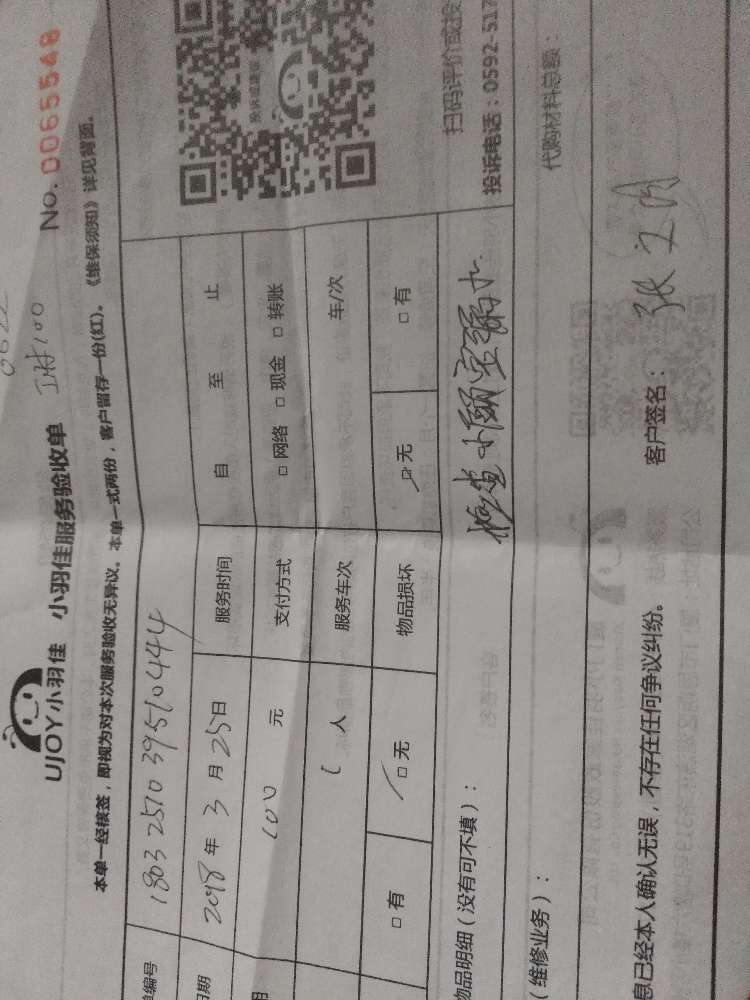 UJOY小羽佳 小羽佳服务验收单 No. 0065548
本单一经核签，即视为对本次服务验收无异议。本单一式两份，客户留存一份(红)。《维保须知》详见背面。
单编号 180325103951044​4
日期 2018年3月25日 服务时间 自 至 止
用 100 元 支付方式 □网络 □现金 □转账
1人 服务车次 车/次
□有 □无 物品损坏 □无 □有
投诉或建议
扫码评价或投
投诉电话：0592-517
物品明细（没有可不填）：
（维修业务）： 代购材料总额：
息已经本人确认无误，不存在任何争议纠纷。 客户签名：